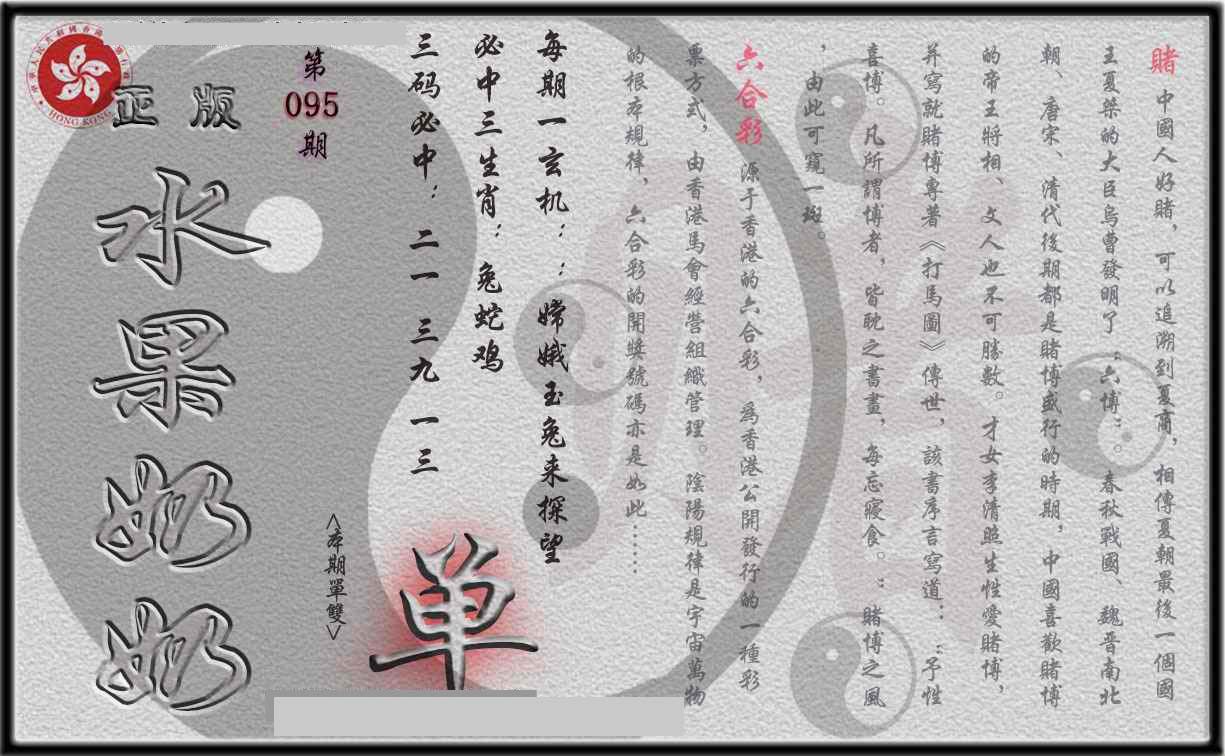 賭 中國人好賭，可以追溯到夏商，相傳夏朝最後一個國
王夏桀的大臣烏曹發明了“六博”。春秋戰國、魏晉南北
朝、唐宋、清代後期都是賭博盛行的時期，中國喜歡賭博
的帝王將相、文人也不可勝數。才女李清照生性愛賭博，
并寫就賭博專著《打馬圖》傳世，該書序言寫道：“予性
喜博。凡所謂博者，皆耽之書晝，每忘寢食。”賭博之風
，由此可窺一斑。
六合彩 源于香港的六合彩，為香港公開發行的一種彩
票方式，由香港馬會經營組織管理。陰陽規律是宇宙萬物
的根本規律，六合彩的開獎號碼亦是如此……
每期一玄机：：嫦娥玉兔来探望
必中三生肖：兔蛇鸡
三码必中：二一 三九 一三
第
095
期
正版
水果奶奶
<本期單雙>
单
HONG KONG